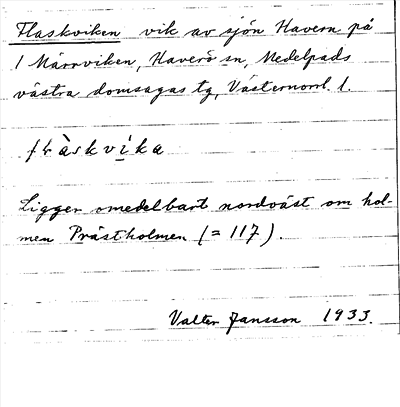 Flaskviken vik av sjön Havern på
1 Märrviken, Haverö sn, Medelpads
västra domsagas tg, Västernorrl. l.
flàskvìka
Ligger omedelbart nordväst om hol-
men Prästholmen (= 117).
Valter Jansson 1933.